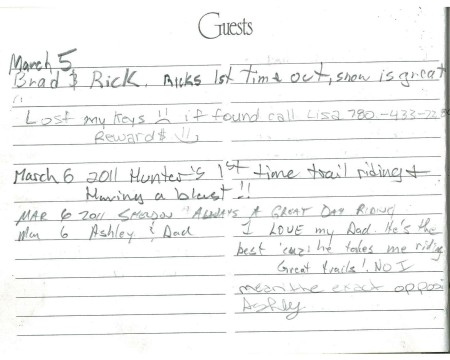 Guests
March 5
Brad & Rick. Ricks 1st time out, snow is great
!!
Lost my keys if found call Lisa 780-433-72
Reward$
March 6 2011 Hunter's 1st time trail riding &
Having a blast!!
MAR 6 2011 "ALWAYS A GREAT DAY RIDING
Mar 6 Ashley & Dad I LOVE my Dad. He's the
best 'cuz he takes me riding
Great trails! NO I
mean the exact opposi
Ashley